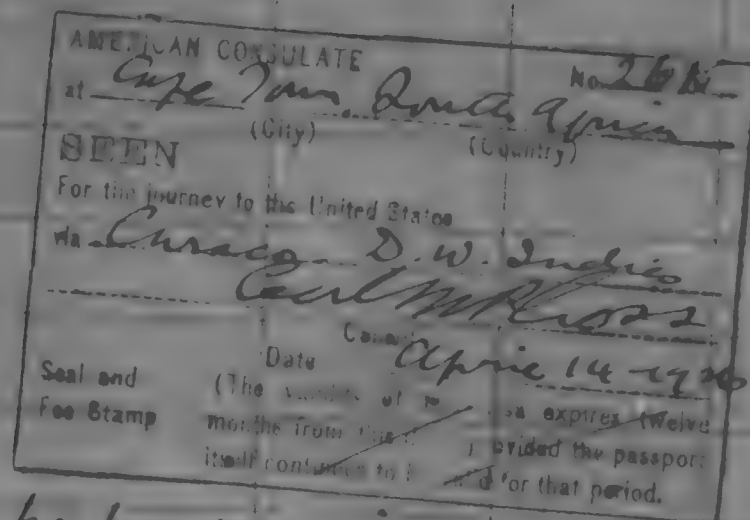 AMERICAN CONSULATE
No.
at Cape Town South Africa
(City) (Country)
SEEN
For the journey to the United States
via Curacao D. W. Indies
Date April 14-19
Seal and (The validity of expires twelve
Fee Stamp months from provided the passport
itself continues to for that period.